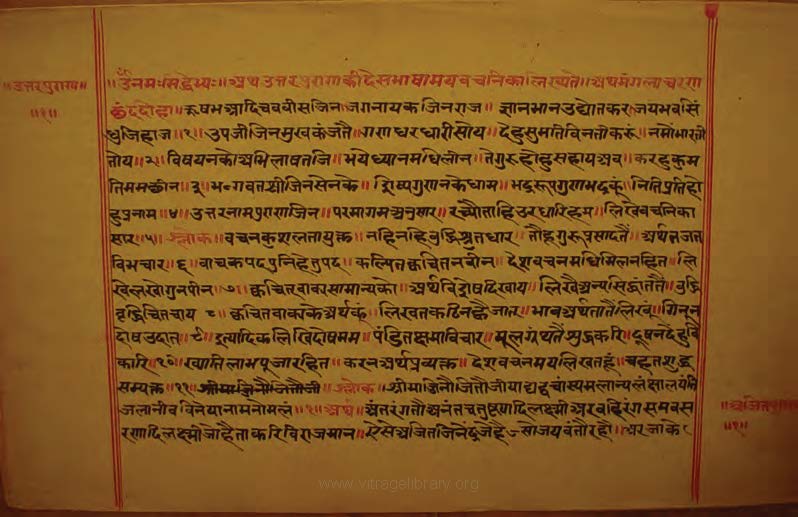 उत्तरपुराण॥
॥१॥
॥ॐनमःसिद्धेभ्यः॥अथउत्तरपुराणकीदेसभाषामयवचनिकालिख्यते॥अथमंगलाचरण
छंददोहा॥ऋषभआदिचववीसजिन।जगनायकजिनराज॥ज्ञानभानउद्योतकर।जयभवसिं
धुजिहाज॥१॥उपजीजिनमुखकंजतै॥गणधरधारीसोय॥देहुसुमतिविनतीकरूं॥नमोंभारती
तोय॥२॥विषयनकीअभिलाषतजि॥भयेध्यानमधिलीन॥तेगुरुहोहुसहायअब॥करहुकुम
तिममछीन॥३॥भगवतश्रीजिनसेनके॥शिष्यगुणनकेधाम॥भद्ररूपगुणभद्रकं॥नितिप्रतिहो
हुप्रनाम॥४॥उत्तरनामपुराणजिन॥परमागमअनुसार॥रच्यौताहिउरधारिहम॥लिखैवचनिका
सार॥५॥श्लोक॥वचनकुशलतायुक्त॥नहिनहिबुद्धिश्रुतधार॥तौहूगुरुप्रसादतैं॥अर्थतजत
विभचार॥६॥वाचकपदपुनिहेतुपद॥कल्पितक्वचितनवीन॥देशवचनमधिमिलनहित॥लि
खेलखोगुनपीन॥७॥क्वचितवाक्यसामान्यको॥अर्थविशेषदिखाय॥लिखैअन्यसिद्धांततैं॥बुद्धि
वृद्धिचितचाय॥८॥क्वचितवाक्यकेअर्थकूं॥लिखतकठिनह्वैजात॥भावअर्थतातैंलिखूं॥गिनून
दोषउदात॥९॥इत्यादिकलिखिदोषमम॥पंडितक्षमाविचार॥मूलग्रंथतैंशुद्धकरि॥दूषनदेहुवि
कारि॥१०॥ख्यातिलाभपूजारहित॥करनअर्थप्रव्यक्त॥देशवचनमयलिखतहूं॥बहुतशुद्ध
सम्यक्त॥११॥श्लोक॥श्रीमान्जिनोजितोजीयाद्यद्वचांस्यमलान्यलंक्षालयंति
जलानीवविनेयानामनोमलं॥१॥अर्थ॥अंतरंगतौअनंतचतुष्टयादिलक्ष्मीअरबहिरंगसमवस
रणादिलक्ष्मीजोहैताकरिविराजमान॥ऐसेअजितजिनेंद्रजेहैंसोजयवंतौरहो॥अरजाके
॥१॥
www.vitragelibrary.org